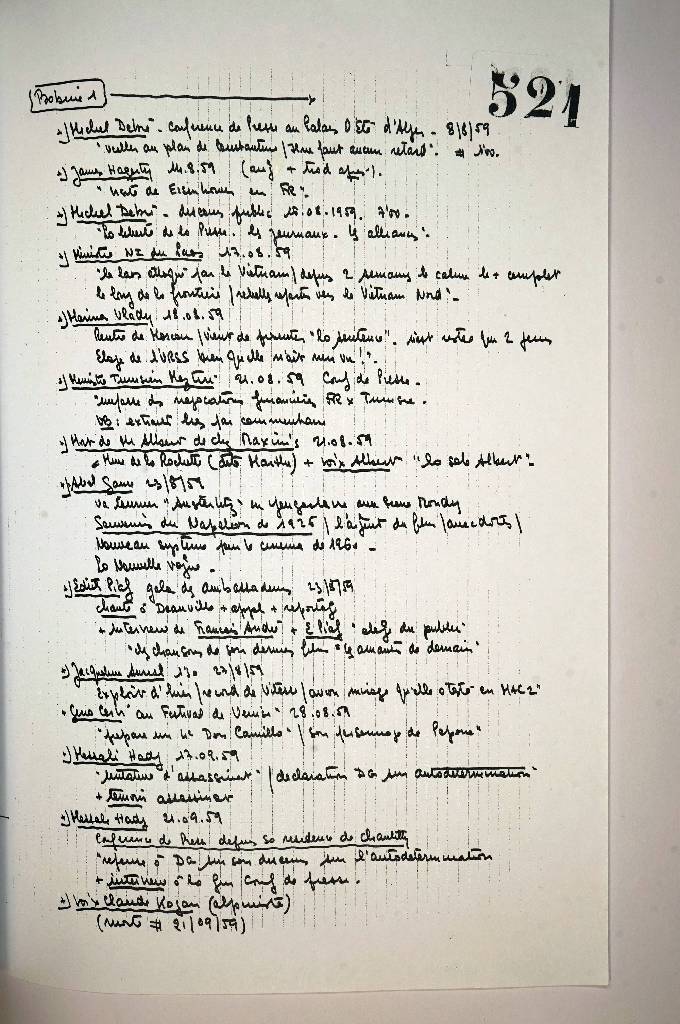 521
Bobine 1
+) Michel Debré - conference de Presse au Palais d'Eté d'Alger - 8/8/59
"veiller au plan de Constantine / Il ne faut aucun retard". # 1'00.
+) James Hagerty 14.8.59 (ang + trad apres).
"visite de Eisenhower en FR".
+) Michel Debré - discours public 16.08.1959. 7'00.
"La liberté de la Presse. les journaux. les alliances".
+) Ministre du Laos 17.08.59
"le Laos attaqué par le Vietnam / depuis 2 semaines le calme le + complet
le long de la frontière / rebelles repartis vers le Vietnam Nord".
+) Marina Vlady 18.08.59
Rentre de Moscou / vient de presenter "la sentence". n'est restée que 2 jours
Eloge de l'URSS bien qu'elle n'ait rien vu!".
+) Ministre Tunisien 21.08.59 Conf de Presse.
"impasse des négociations financières FR x Tunisie.
NB: extrait lues par commentaire
+) Mort de Mr Albert de chez Maxim's 21.08.59
Mme de la Rochette (dite Marthe) + voix Albert "la sole Albert".
+) Abel Gance 23/8/59
va tourner "Austerlitz" en Yougoslavie
Souvenirs du Napoléon de 1926 / l'ajout du film / anecdotes /
Nouveau système pour le cinema de 1960 -
La Nouvelle vague -
+) Edith Piaf gala des ambassadeurs 23/8/59
chante à Deauville + appl + reportage
+ interview de Francois André + E Piaf "eloge du public"
"des chansons de son dernier film "les amants de demain"
+) Jacqueline Auriol 1'30 27/8/59
Exploit d'hier / record de vitesse / avion mirage qu'elle a testé en MAC 2"
+ Gino Cervi au Festival de Venise 28.08.59
"prepare un 4e Don Camillo" / son personnage de Pepone"
+) Messali Hadj 17.09.59
"tentative d'assassinat" / declaration DG sur autodetermination
+ témoin assassinat
+) Messali Hadj 21.09.59
Conference de Presse depuis sa residence de Chantilly
"reponse à DG sur son discours sur l'autodétermination
+ interview à la fin Conf de presse.
+) Voix Claude Kogan (alpiniste)
(morte # 21/09/59)